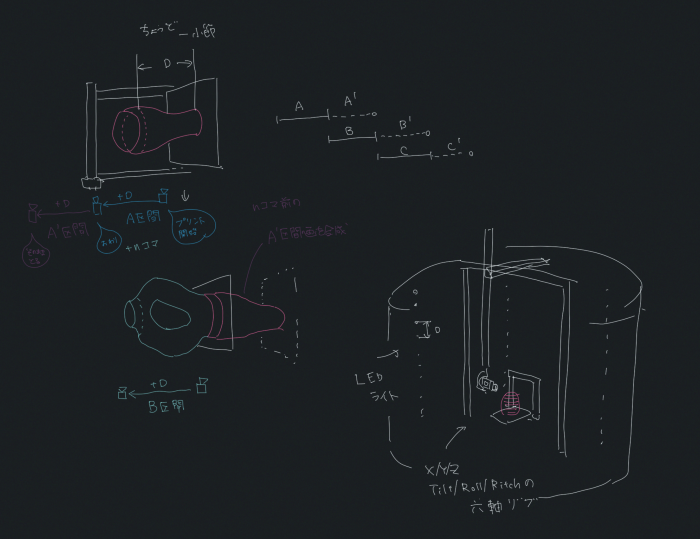 ちょうど一小節
D
A
A'
B
B'
C
C'
+D
+D
A'区間
A区間
プリント
開始
おわり
それをすてる
+nコマ
nコマ前の
A'区間画を合成
+D
B区間
D
LED
ライト
X/Y/Z
Tilt/Roll/Pitchの
六軸リグ